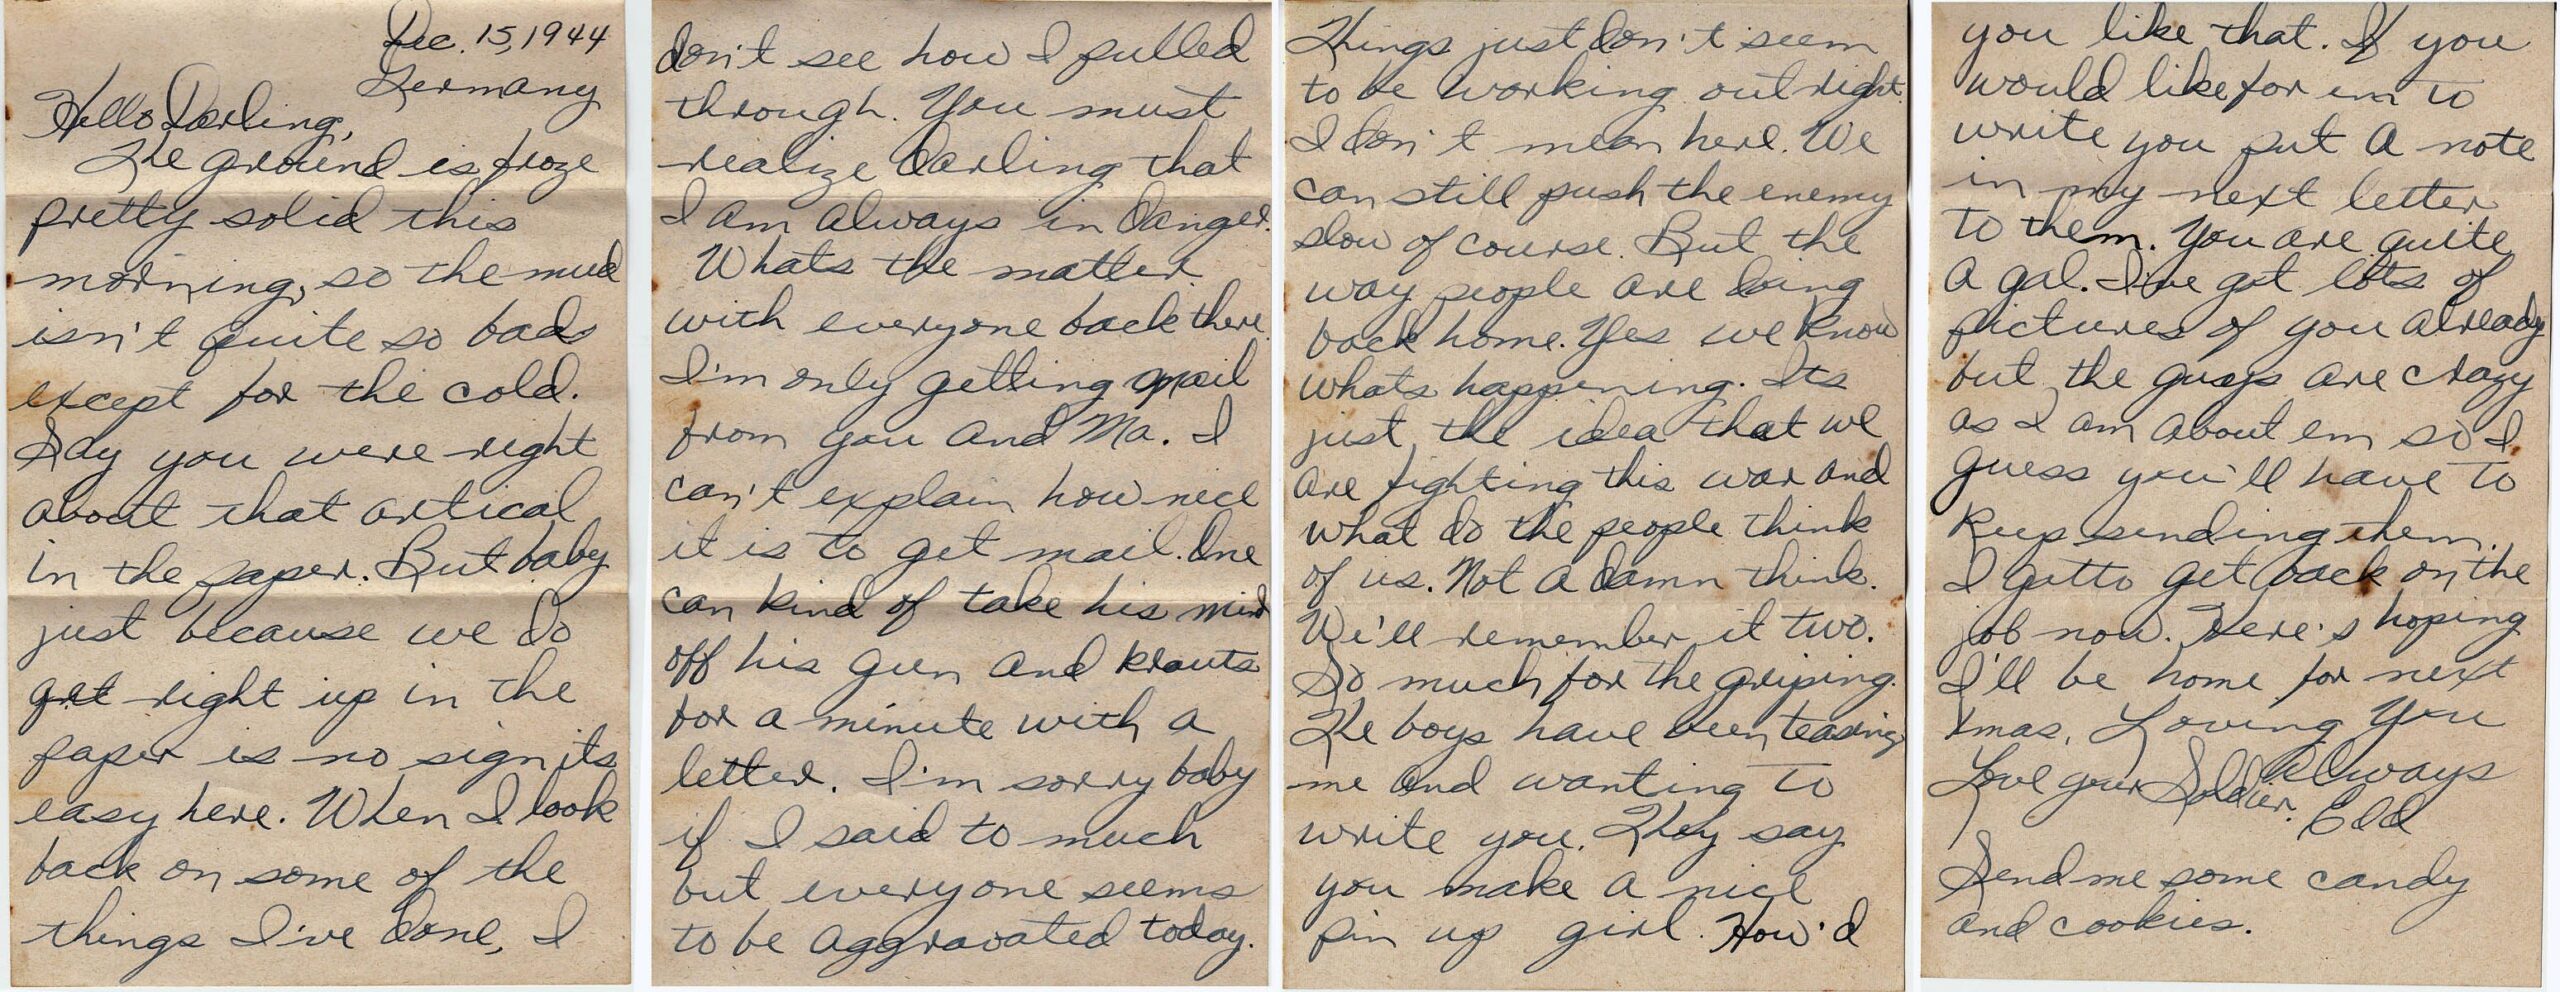 Dec. 15, 1944
Germany
Hello Darling,
The ground is froze
pretty solid this
morning, so the mud
isn't quite so bad
except for the cold.
Say you were right
about that artical
in the paper. But baby
just because we do
get right up in the
paper is no sign its
easy here. When I look
back on some of the
things I've done, I
don't see how I pulled
through. You must
realize darling that
I am always in danger.
Whats the matter
with everyone back there.
I'm only getting mail
from you and Ma. I
can't explain how nice
it is to get mail. One
can kind of take his mind
off his gun and krauts
for a minute with a
letter. I'm sorry baby
if I said to much
but everyone seems
to be aggravated today.
Things just don't seem
to be working out right.
I don't mean here. We
can still push the enemy
slow of course. But the
way people are being
back home. Yes we know
whats happening. Its
just the idea that we
are fighting this war and
what do the people think
of us. Not a damn think.
We'll remember it two.
So much for the griping.
The boys have been teasing
me and wanting to
write you. They say
you make a nice
pin up girl. How'd
you like that. If you
would like for em to
write you put a note
in my next letter
to them. You are quite
a gal. I've got lots of
pictures of you already
but the guys are crazy
as I am about em so I
guess you'll have to
keep sending them.
I gotto get back on the
job now. Here's hoping
I'll be home for next
Xmas. Loving You
Always
Love your Soldier.
Edd
Send me some candy
and cookies.